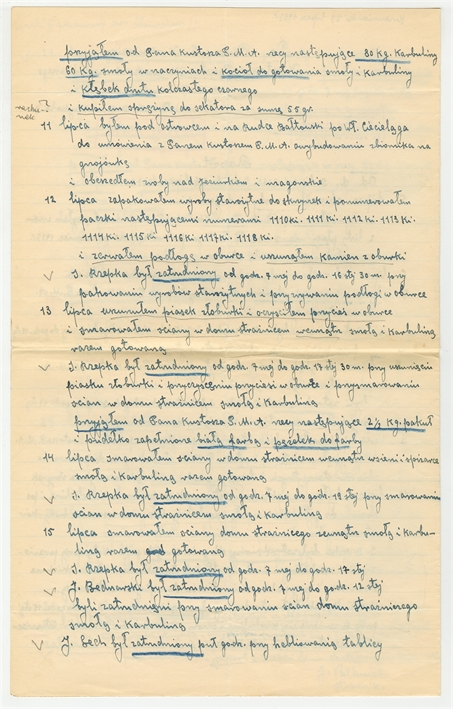 przyjąłem od Pana Kustosza P.M.A. recy następujące 80 Kg. Karbuliny
60 Kg. smoły w naczyniach i kocioł do gotowania smoły i Karbuliny
i kłębek drutu kolczastego czarnego
i kupiłem sprężynę do sekatora za sumę 55 gr.
rachu-
nek?
11 lipca byłem pod Ostrowcem i na Ruda Bałtowski po Wł. Cieciela̧ga
do umówienia z Panem Kustoszem P.M.A. wybudowanie zbiornika na
gnojówkę
i obeszedłem
12 lipca zapakowałem wyroby starożytne do skrzynek i ponumerowałem
paczki następującymi numerami 1110ki. 1111 Ki. 1112 Ki. 1113 Ki.
1114 Ki. 1115 Ki 1116 Ki 1117 Ki. 1118 Ki.
i zerwałem podłogę w oborce i usunąłem kamien z oborki
J. Rzepka był zatrudniony od godz. 7 mej do godz. 16 stej 30 m. przy
pakowaniu wyrobów starożytnych i przy zrywaniu podłogi w oborce
13 lipca usunąłem piasek z oborki i oczyściłem przyciesi w oborce
i smarowałem ściany w domu strażniczem wewnątrz smołą i Karbuliną
razem gotowaną
J. Rzepka był zatrudniony od godz. 7 mej do godz. 17 stej 30 m. przy usunięciu
piasku z oborki i przy czyszczeniu przyciesi w oborce i przy smarowaniu
ścian w domu strażniczem smołą i Karbuliną
przyjąłem od Pana Kustosza P.M.A. recy następujące 2½ Kg. pakuł
i pudełko zapełnione białą farbą i pęzelek do farby
14 lipca smarowałem ściany w domu strażniczem wewnątrz w sieni i spiżarce
smołą i Karbuliną razem gotowaną
J. Rzepka był zatrudniony od godz. 7 mej do godz. 18 stej przy smarowaniu
ścian w domu strażniczem smołą i Karbuliną
15 lipca smarowałem ściany domu strażniczego zewnątrz smołą i Karbu-
liną razem gotowaną
J. Rzepka był zatrudniony od godz. 7 mej do godz. 17 stej
J. Bednarski był zatrudniony od godz. 7 mej do godz. 12 stej
byli zatrudnieni przy smarowaniu ścian domu strażniczego
smołą i Karbuliną
J. Bech był zatrudniony puł godz. przy heblowaniu tablicy